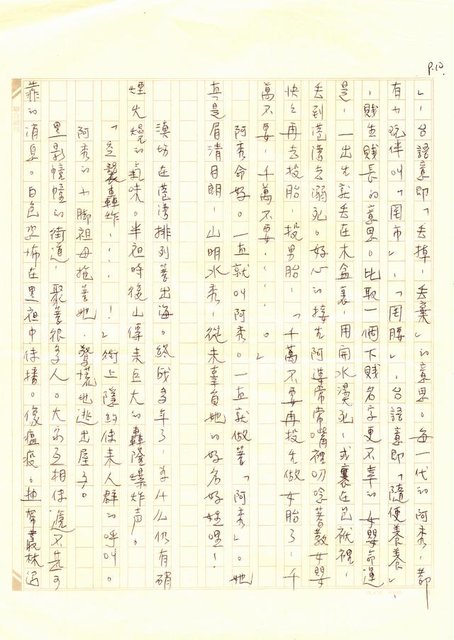 P.10.
」，台語意即「去掉，丟棄」的意思。每一代的阿秀，都
有小玩伴叫「罔市」、「罔腰」，台語意即「隨便養養」
，賤生賤長的意思。比取一個下賤名字更不幸的女嬰命運
是，一出生就丟在木盆裏，用開水燙死，或裹在包袱裡，
丟到港邊去溺死。好心的接生阿婆常常嘴裡叨唸著教女嬰
快々再去投胎，投男胎，「千萬不要再投生做女胎了，千
萬不要，千萬不要……。」
阿秀命好。一直就叫阿秀。一直就做著「阿秀」。她
真是眉清目朗，山明水秀，從未辜負她的好名好姓哩！
漁坊在港灣排列著出海。終戰多年了，為什么仍有硝
煙火燒的氣味。半祖時後山傳來巨大的轟隆爆炸声。
「空襲轟炸……！」街上隱約傳來人群的呼叫。
阿秀的小腳祖母抱著她，驚慌地逃出屋子。
黑影幢幢的街道，聚著很多人。大家互相傳遞不甚可
靠的消息。白色恐怖在黑祖中傳播。像瘟疫，